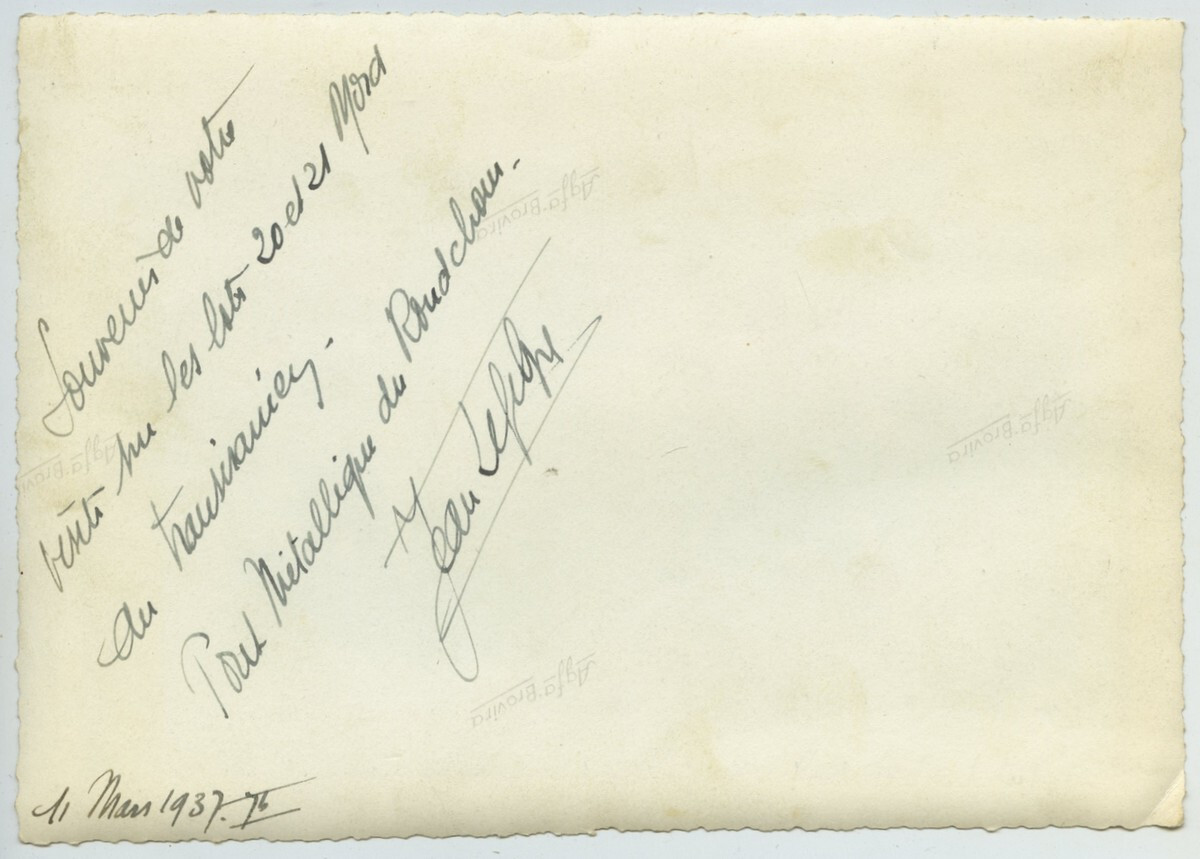 Souvenir de votre
visite sur les lots 20 et 21 Nord
du transiranien.
Pont Métallique du Roudchour.
Jean
11 Mars 1937.
Agfa-Brovira
Agfa-Brovira
Agfa-Brovira
Agfa-Brovira